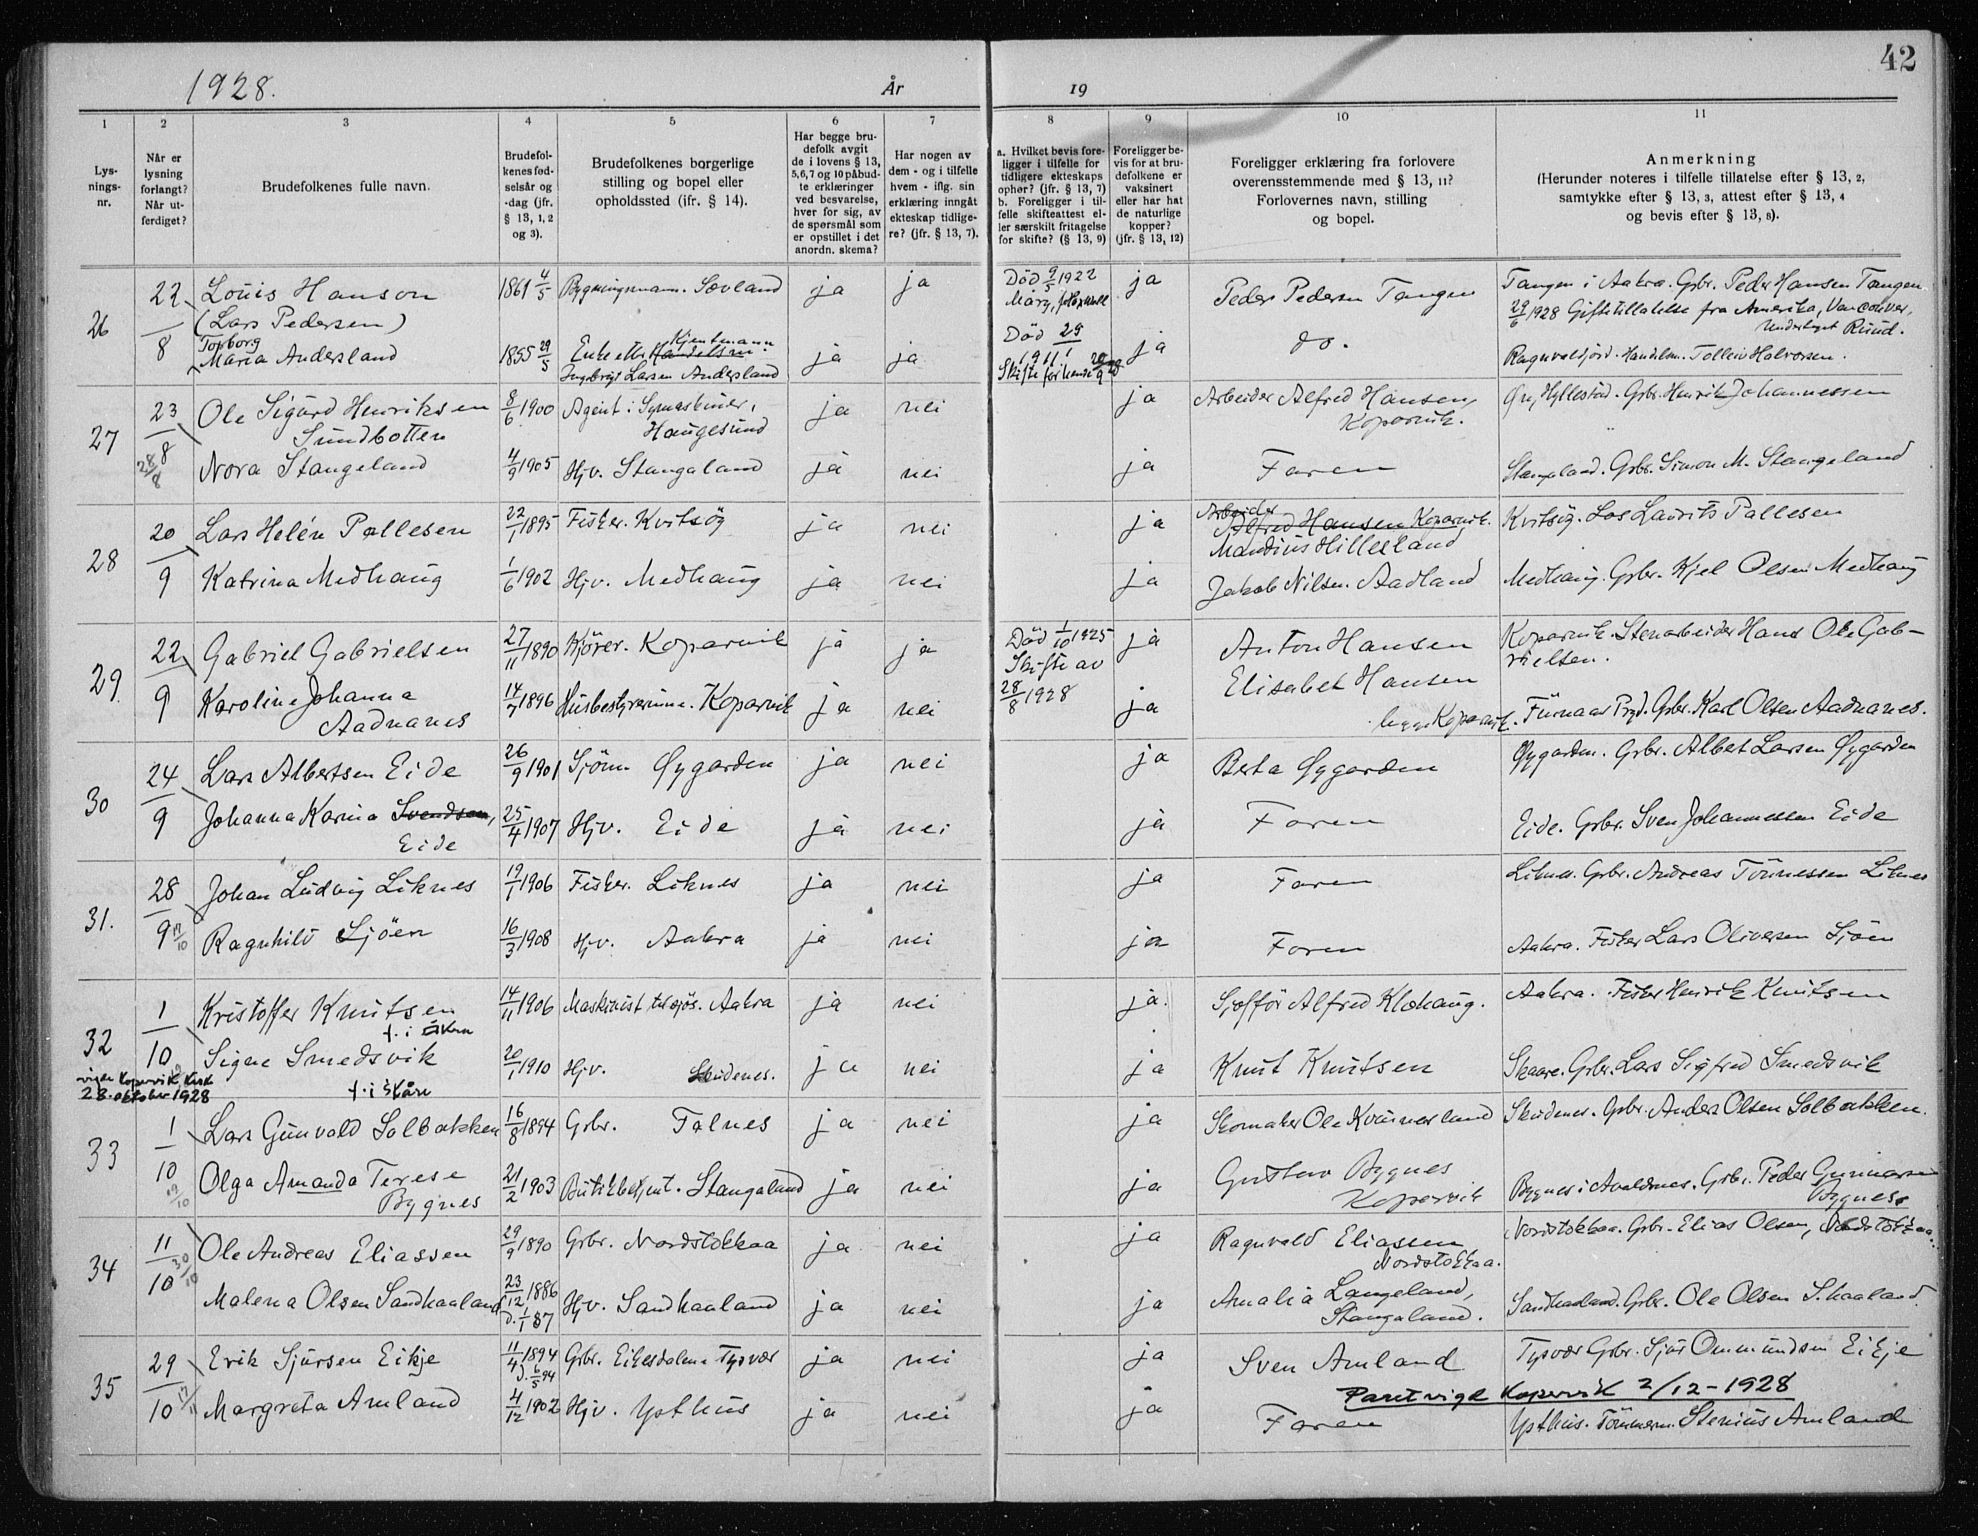 42
1928. År 19
1 2 3 4 5 6 7 8 9 10 11
Lys-
nings-
nr.
Når er
lysning
forlangt?
Når ut-
ferdiget?
Brudefolkenes fulle navn.
Brudefol-
kenes fød-
selsår og
-dag (jfr.
§ 13, 1, 2
og 3).
Brudefolkenes borgerlige
stilling og bopel eller
opholdssted (ifr. § 14).
Har begge bru-
defolk avgit
de i lovens § 13,
5,6,7 og 10 påbud-
te erklæringer
ved besvarelse,
hver for sig, av
de spørsmål som
er opstillet i det
anordn. skema?
Har nogen av
dem - og i tilfelle
hvem - iflg. sin
erklæring inngåt
ekteskap tidlige-
re? (jfr. § 13, 7).
a. Hvilket bevis fore-
ligger i tilfelle for
tidligere ekteskaps
ophør? (jfr. § 13, 7)
b. Foreligger i til-
felle skifteattest el-
ler særskilt fritagelse
for skifte? (§ 13, 9)
Foreligger be-
vis for at bru-
defolkene er
vaksinert
eller har hat
de naturlige
kopper?
(jfr. § 13, 12)
Foreligger erklæring fra forlovere
overensstemmende med § 13, 11?
Forlovernes navn, stilling
og bopel.
Anmerkning
(Herunder noteres i tilfelle tillatelse efter § 13, 2,
samtykke efter § 13, 3, attest efter § 13, 4
og bevis efter § 13, 8).
26 22/8 Louis Hanson 1861 4/5 Bygningsmann. Sævland ja ja Død 9/5 1922 ja Peder Pedersen Tangen Tangen i Aakra. Gbr. Peder Hansen Tangen
(Lars Pedersen) 29/6 1928 Giftetillatelse fra Amerika, Vancouver,
Underteget Rund.
Torborg Kjentmann
Maria Andersland 1855 29/5 Enke etter Handelsm. ja ja Død 29/1 1911 ja do. Ragnvaldsjord. Handelsm. Tollein Halvorsen.
Ingebrigt Larsen Andersland Skifte forhende 20/9 28
27 23/8 28/8 Ole Sigurd Henriksen 8/6 1900 Agent i Symaskiner, ja nei ja Arbeider Alfred Hansen, Hyllestad. Gbr. Henrik Johannessen
Sundbotten Haugesund Koparvik.
Nora Stangeland 4/9 1905 Hjv. Stangaland ja nei ja Faren Stangeland. Gbr. Simon M. Stangeland
28 20/9 Lars Helén Pallesen 22/1 1895 Fisker. Kvitsøy ja nei ja Arbeider Alfred Hansen Koparvik. Kvitsøy. Los Laurits Pallesen
Mandius Hillesland
Katrina Medhaug 1/6 1902 Hjv. Medhaug ja nei ja Jakob Nilsen. Aadland Medhaug. Gbr. Kjel Olsen Medhaug
29. 22/9 Gabriel Gabrielsen 27/11 1890 Kjører. Koparvik ja ja Død 1/10 1925 ja Anton Hansen Koparvik. Stenarbeider Hans Ole Gab-
Skifte av 28/8 1928 Elisabet Hansen rielsen.
Karoline Johanna 14/7 1896 Husbestyrerinne. Koparvik ja nei ja begge Koparvik. Furnaas Pryd. Gbr. Karl Olsen Aadnanes.
Aadnanes
30 24/9 Lars Albertsen Eide 26/9 1901 Sjöm Øygarden ja nei ja Berta Øygarden Øygarden. Gbr. Albet Larsen Øygarden
Johanna Karina Svendsen, 25/4 1907 Hjv. Eide ja nei ja Faren Eide. Gbr. Sven Johannessen Eide
Eide
31. 28/9 17/10 Johan Ludvig Liknes 19/1 1906 Fisker. Liknes ja nei ja Faren Liknes. Gbr. Andreas Tönnessen Liknes
Ragnhild Sjöen 16/3 1908 Hjv. Aakra ja nei ja Faren Aakra. Fisker Lars Oliversen Sjöen
32 1/10 Kristoffer Knutsen 14/11 1906 Maskinist tilsjös. Aakra ja nei ja. Sjofför Alfred Klohaug. Aakra. Fisker Henrik Knutsen
f. i Åkra
Signe Smedsvik 20/1 1910 Hjv. Skudenes. ja nei ja Knut Knutsen Skaare. Gbr. Lars Sigfred Smedsvik
f. i Skåre
vigde Kopervik Kirke
28. oktober 1928
33 1/10 19/10 Lars Gunvald Solbakken 16/8 1894 Grbr. Falnes ja nei ja Skomaker Ole Kvinnesland Skudenes. Gbr. Anders Olsen Solbakken.
Olga Amanda Terese 21/2 1903 Butikkbetjent. Stangaland ja nei ja Gustav Bygnes Bygnes i Avaldsnes. Gbr. Peder Gunnarsen
Bygnes Kopervik Bygnes
34 11/10 30/10 Ole Andreas Eliassen 29/9 1890 Grbr. Nordstokkaa ja nei ja Ragnvald Eliassen Nordstokkaa. Gbr. Elias Olsen, Nordstokkaa.
Nordstokkaa.
Malena Olsen Sandhaaland 23/12 1886 Hjv. Sandhaaland ja nei ja Amalia Langeland, Sandhaaland. Gbr. Ole Olsen S.haaland.
d. 1/1 87 Stangaland.
35 29/10 17/11 Erik Sjursen Eikje 11/4 1894 Grbr. Eikesdalen Tysvær ja nei ja Sven Amland Tysvær Gbr. Sjur Ommundsen Eikje
D. 6/5 94
Paret vigd Kopervik 2/12-1928
Margreta Amland 4/12 1902 Hjv. Ysthus ja nei ja Faren Ysthus. Tömmerm. Stenius Amland